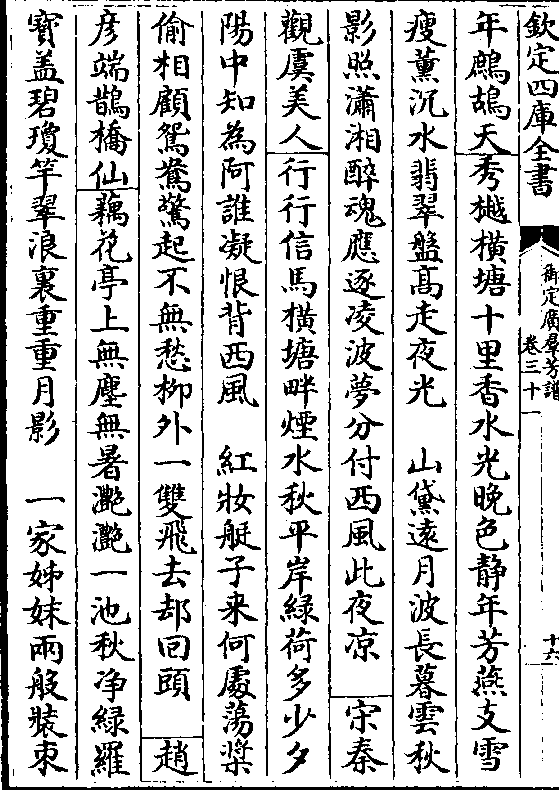 欽定四庫全書
御定廣羣芳譜
卷三十一
十六
年鷓鴣天秀樾橫塘十里香水光晚色静年芳燕支雪
瘦薰沉水翡翠盤髙走夜光　山黛遠月波長暮雲秋
影照瀟湘醉魂應逐凌波夢分付西風此夜凉　宋秦
觀虞美人行行信馬橫塘畔煙水秋平岸綠荷多少夕
陽中知為阿誰凝恨背西風　紅妝艇子來何處蕩槳
偷相顧鴛鴦驚起不無愁柳外一雙飛去却回頭　趙
彦端鵲橋仙藕花亭上無塵無暑灧灧一池秋净綠羅
寳盖碧瓊竿翠浪裏重重月影　一家姊妹兩般裝束